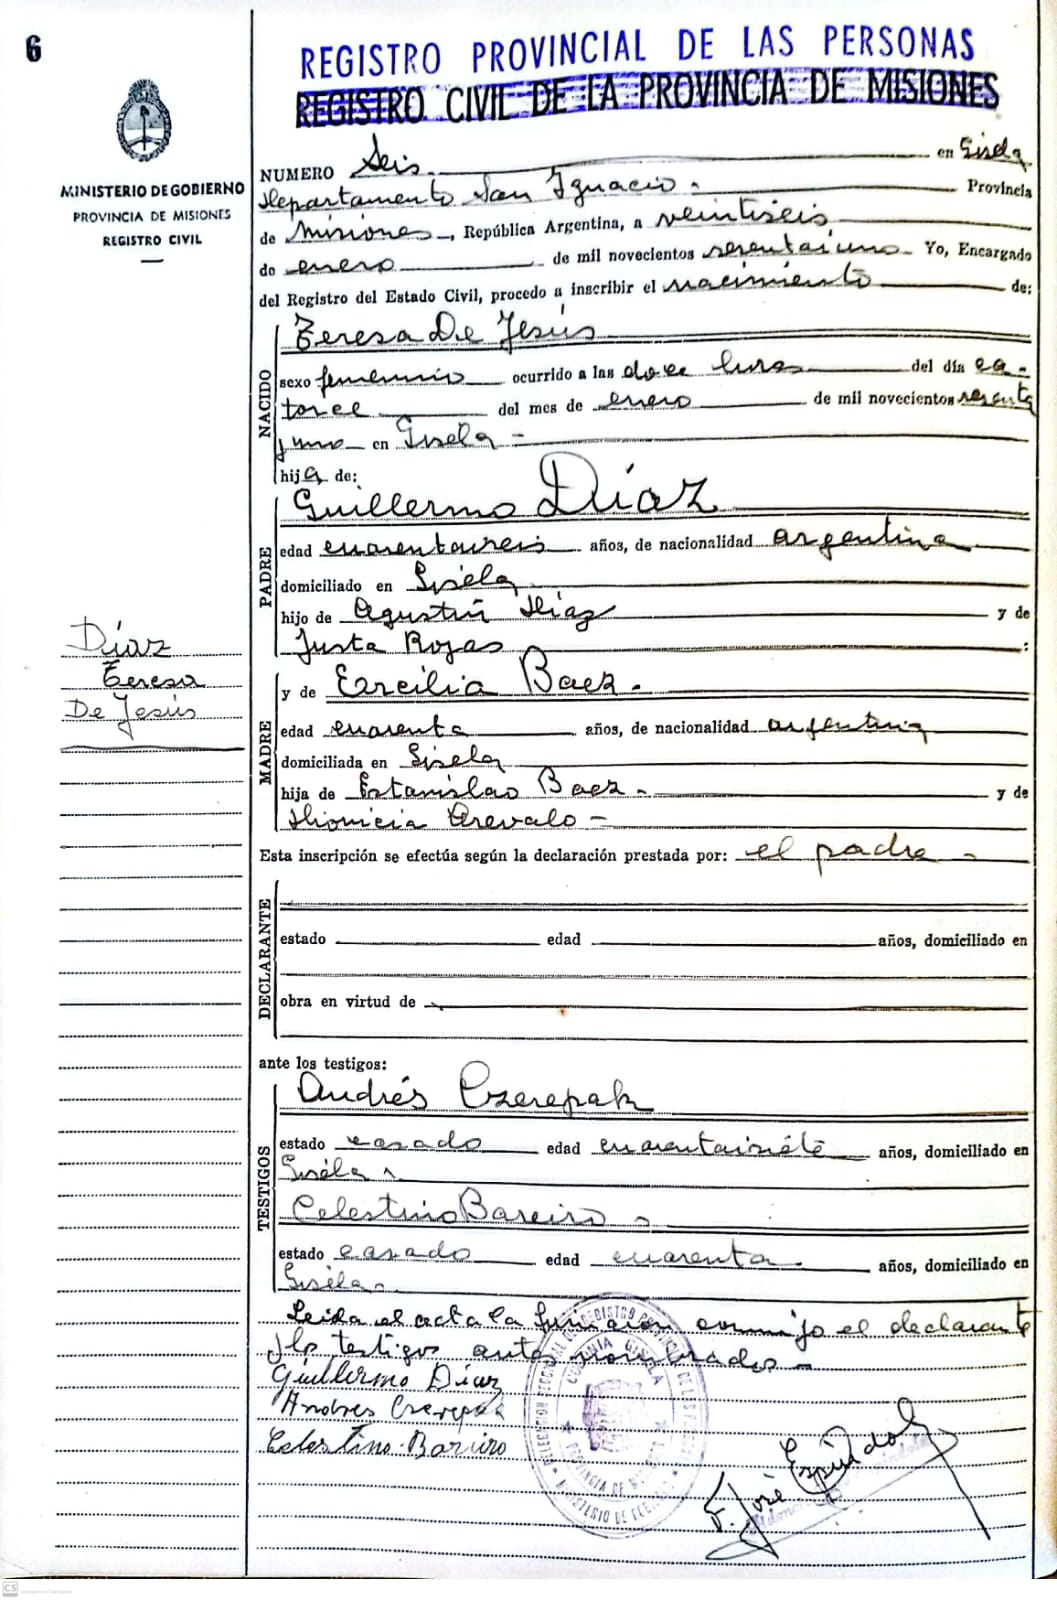 6
REGISTRO PROVINCIAL DE LAS PERSONAS
REGISTRO CIVIL DE LA PROVINCIA DE MISIONES
MINISTERIO DE GOBIERNO
PROVINCIA DE MISIONES
REGISTRO CIVIL
NUMERO Seis en Gisela
Departamento San Ignacio - Provincia
de Misiones, República Argentina, a veintiseis
de enero de mil novecientos sesentaiuno Yo, Encargado
del Registro del Estado Civil, procedo a inscribir el nacimiento de:
NACIDO
Teresa De Jesús
sexo femenino ocurrido a las doce horas del día ca-
torce del mes de enero de mil novecientos sesenta
yuno en Gisela -
hija de:
PADRE
Guillermo Díaz
edad cuarentaiseis años, de nacionalidad argentina
domiciliado en Gisela
hijo de Agustín Díaz y de
Justa Rojas :
Díaz
Teresa
De Jesús
MADRE
y de Ercilia Baez -
edad cuarenta años, de nacionalidad argentina
domiciliada en Gisela
hija de Estanislao Baez - y de
Dionicia Arevalo -
Esta inscripción se efectúa según la declaración prestada por: el padre -
DECLARANTE
estado edad años, domiciliado en
obra en virtud de
ante los testigos:
TESTIGOS
Andrés Czerepak
estado casado edad cuarentaisiete años, domiciliado en
Gisela -
Celestino Bareiro -
estado casado edad cuarenta años, domiciliado en
Gisela -
Leida el acta la firmaron conmigo el declarante
y los testigos antes nombrados -
Guillermo Díaz
Andres Czerepak
Celestino Bariro
COLONIA GISELA
PROVINCIA DE MISIONES
F. José Espíndola
CS